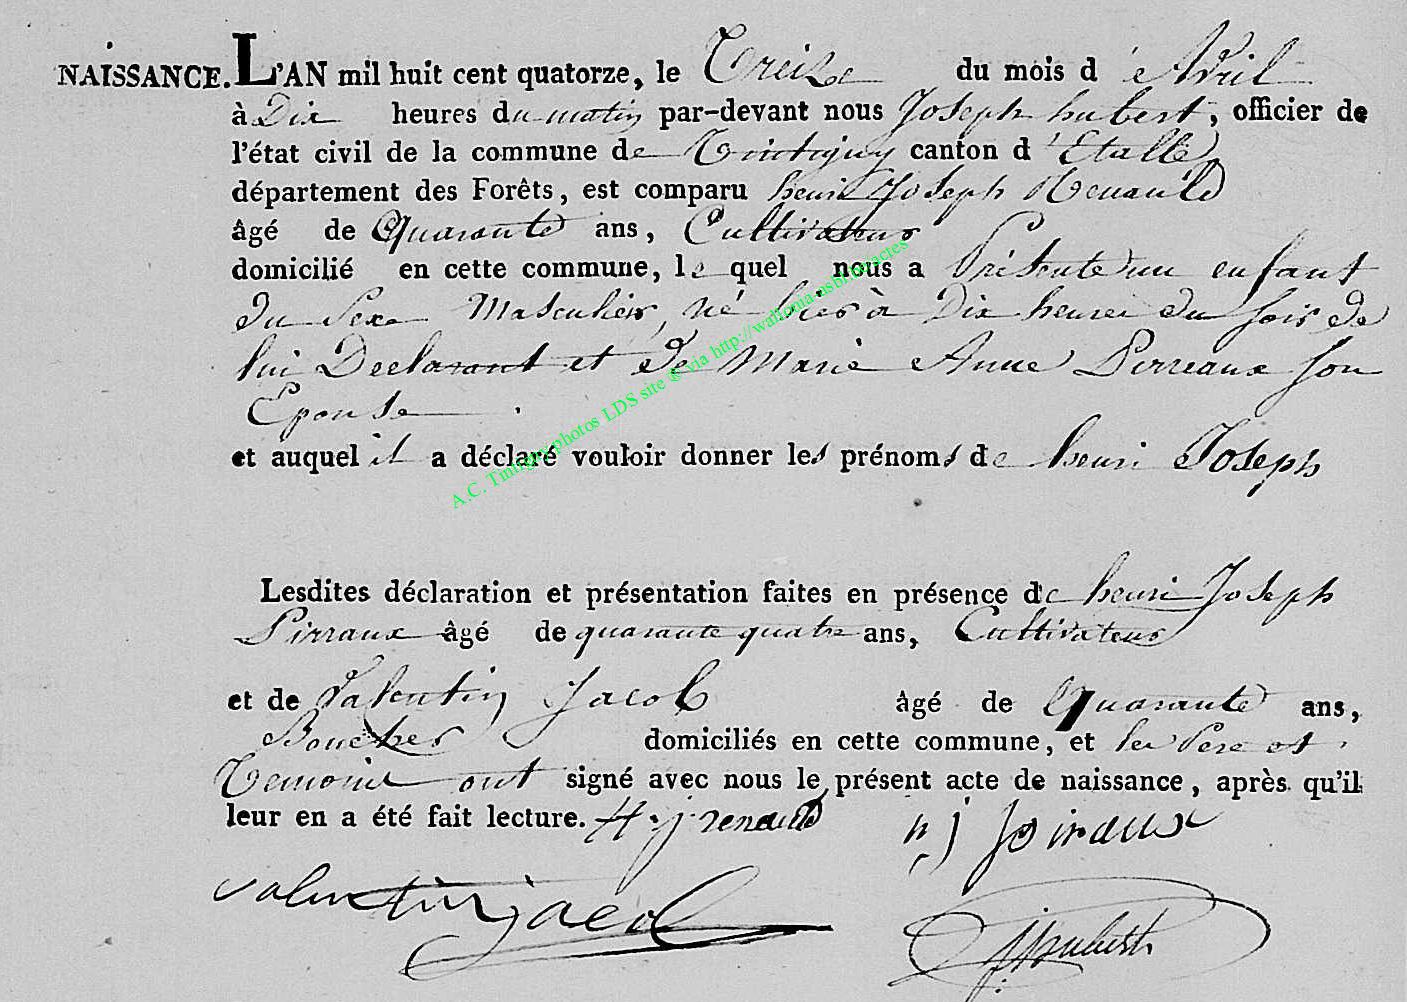 NAISSANCE. L'AN mil huit cent quatorze, le Treize du mois d'Avril
à Dix heures du matin par-devant nous Joseph hubert, officier de
l'état civil de la commune de Tintigny canton d'Etalle
département des Forêts, est comparu henri Joseph Renauld
âgé de Quarante ans, Cultivateur
domicilié en cette commune, le quel nous a Présenté un enfant
du Sexe Masculin, né hier à Dix heures du soir de
lui Declarant et de Marie Anne Pirreaux son
Epouse.
et auquel il a déclaré vouloir donner les prénoms de henri Joseph
Lesdites déclaration et présentation faites en présence de henri Joseph
Pirraux âgé de quarante quatre ans, Cultivateur
et de Valentin Jacob âgé de Quarante ans,
Boucher domiciliés en cette commune, et les Pere et
Temoins ont signé avec nous le présent acte de naissance, après qu'il
leur en a été fait lecture. H. j. renauld h, j poiraux
valentin jacob
jhubert
A.C. Tintigny photos LDS site ® via http://wallonia-asbl.be/actes